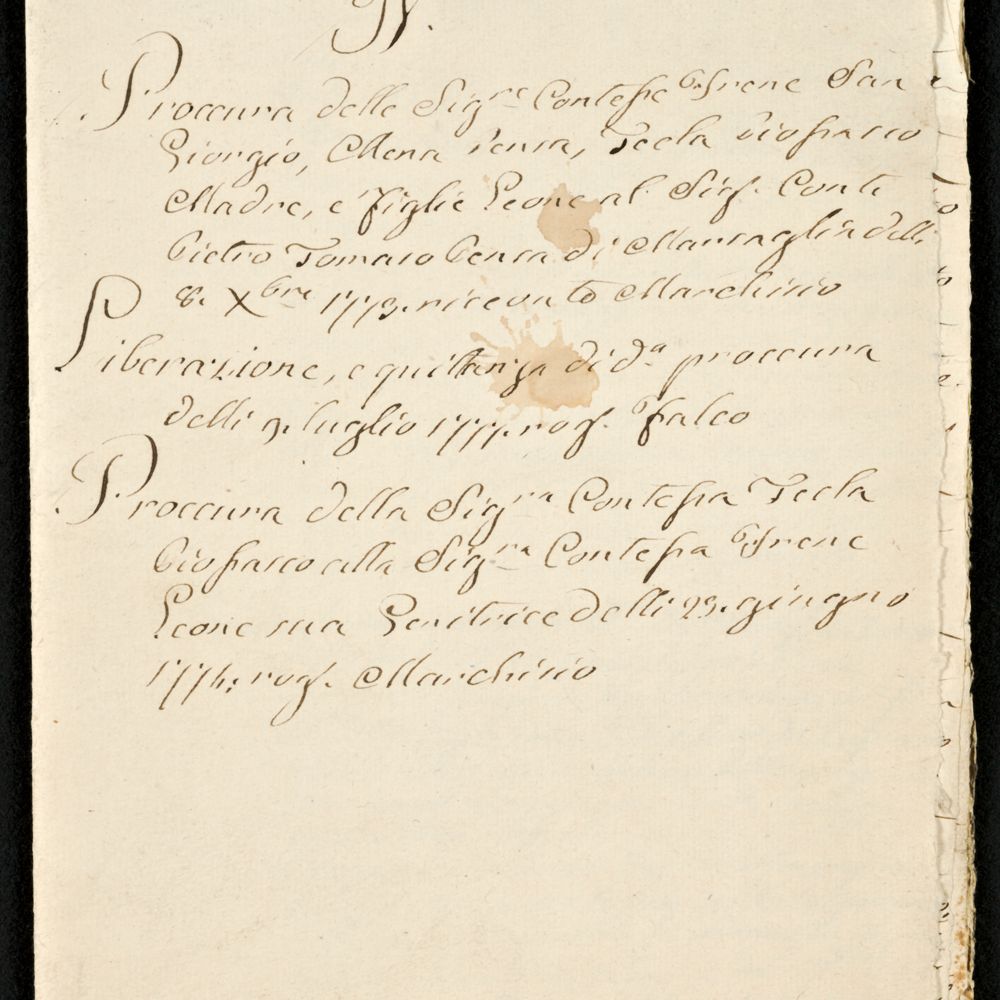 IV.
Proccura delle Sig.re Contesse Irene San
Giorgio, Mena Pensa, Tecla Piossasco
Madre, e figlie Leone al Sig.r Conte
Pietro Tomaso Pensa di Marsaglia delli
8. Xbre 1773. ricevuto Marchisio
Liberazione, e quittanza di d.a proccura
delli 9. luglio 1777. rog.o Falco
Proccura della Sig.ra Contessa Tecla
Piossasco alla Sig.ra Contessa Irene
Leone sua Genitrice delli 23. giugno
1774: rog.o Marchisio